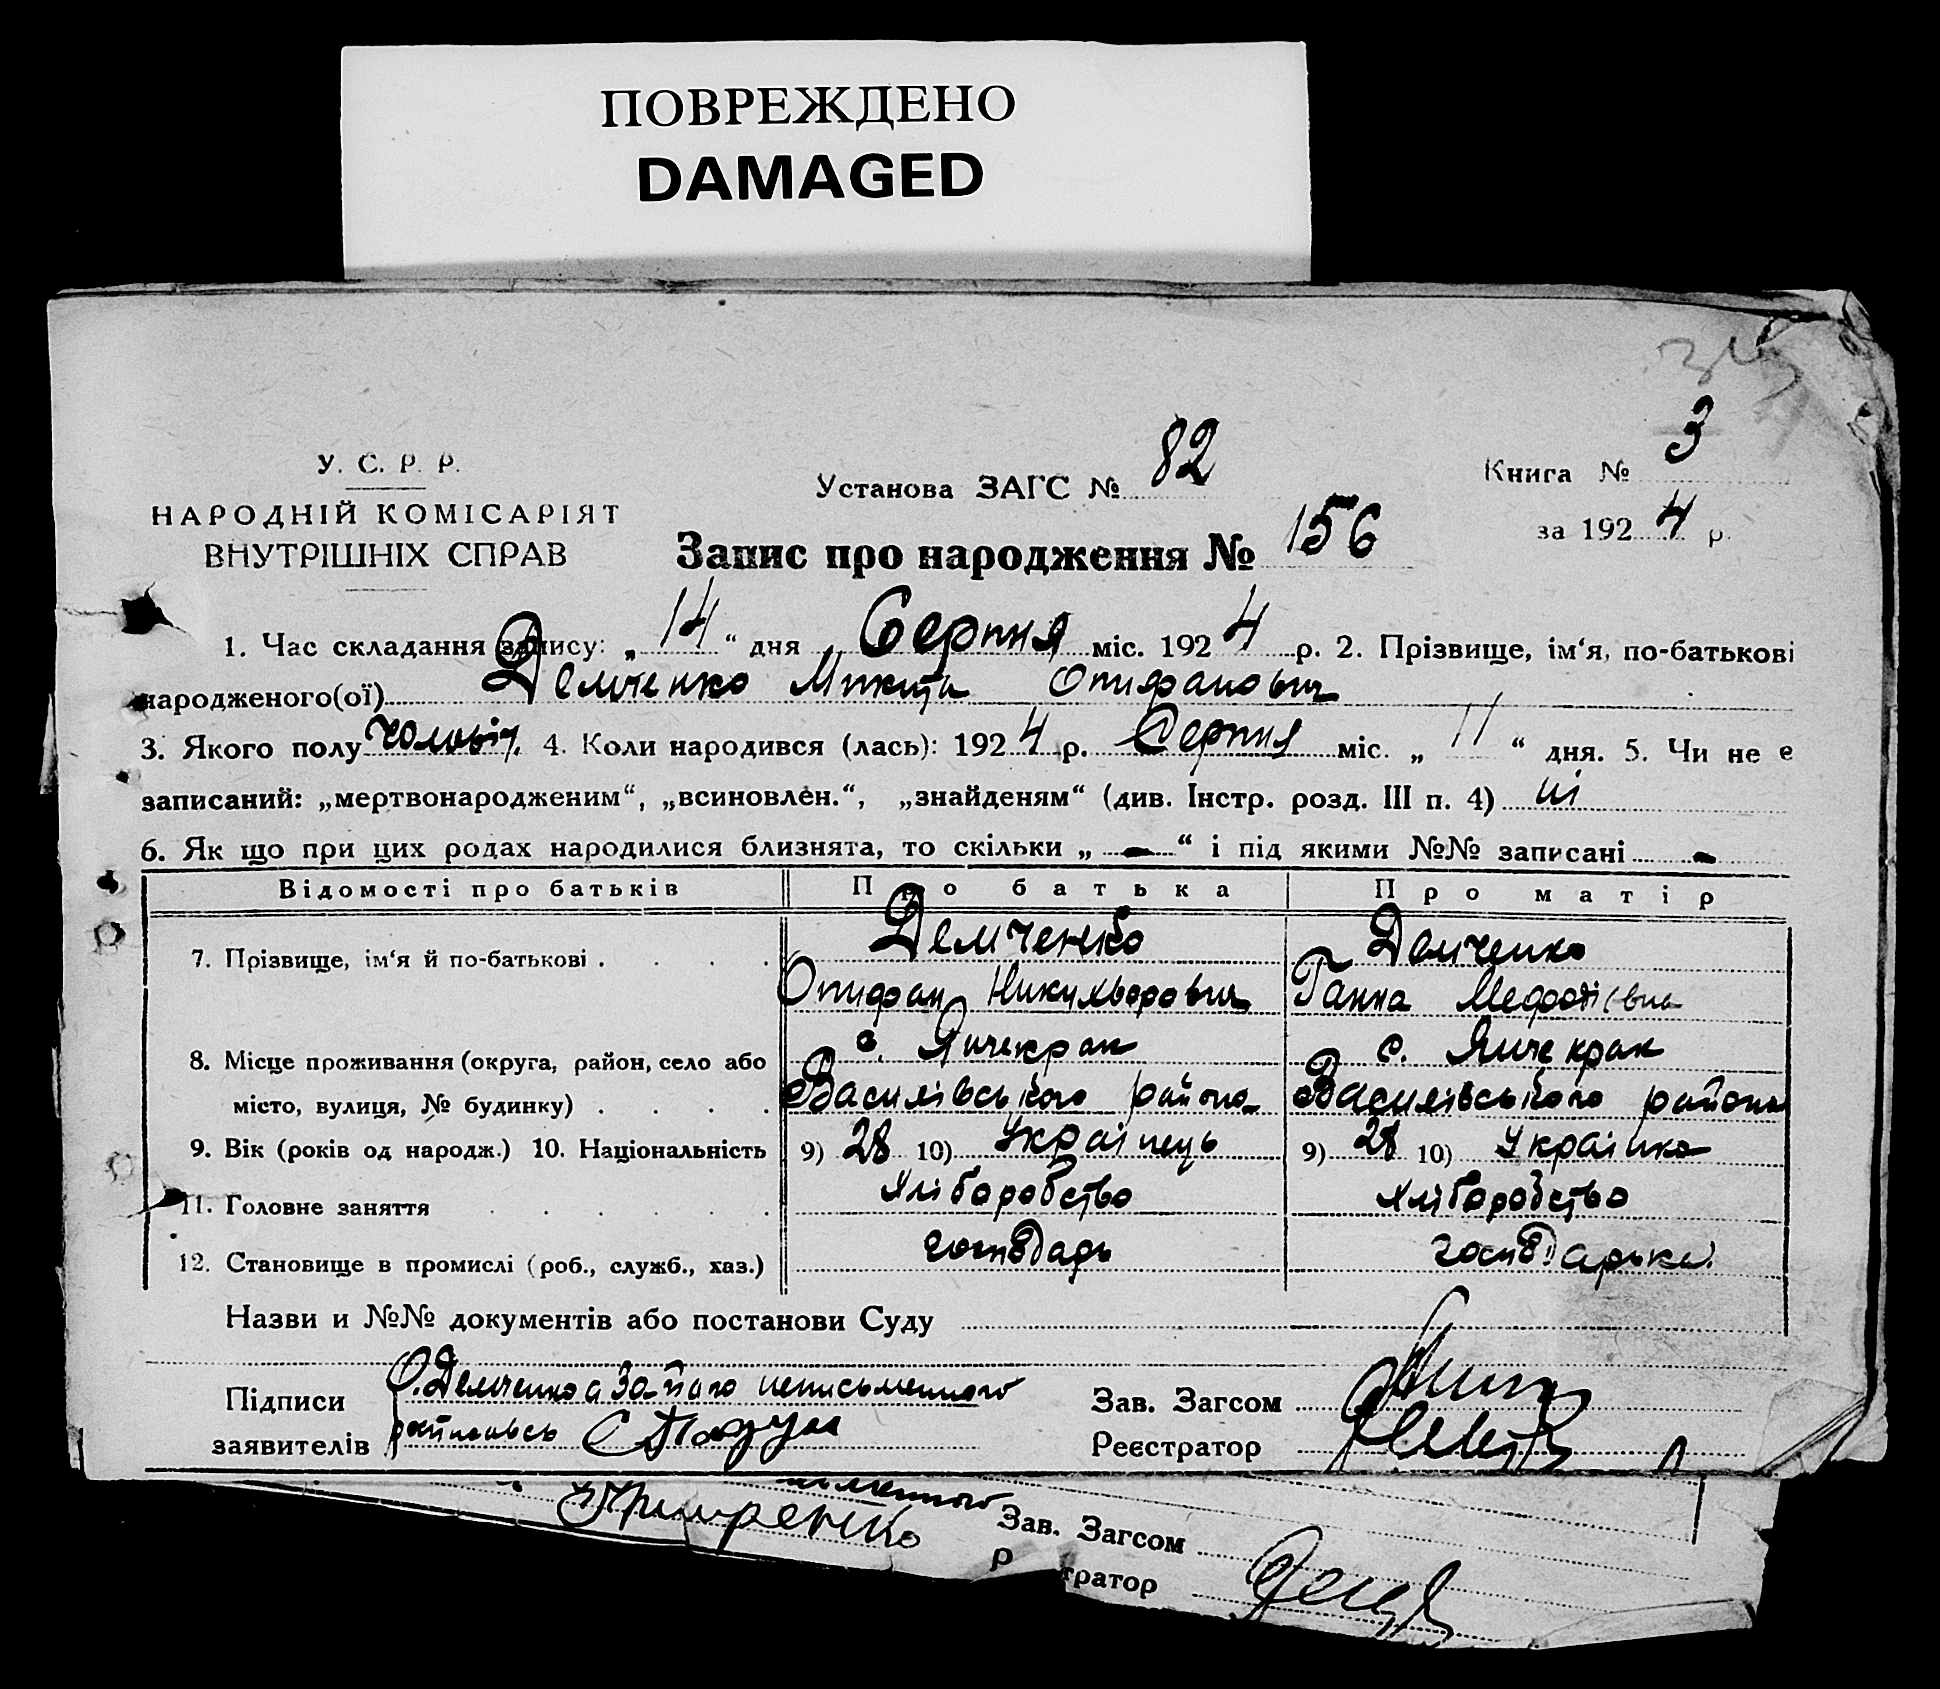 ПОВРЕЖДЕНО
DAMAGED
3
У. С. Р. Р.
НАРОДНІЙ КОМІСАРІЯТ
ВНУТРІШНІХ СПРАВ
Установа ЗАГС № 82
Книга № 3
за 1924 р.
Запис про народження № 156
1. Час складання запису: „14“ дня Серпня міс. 1924 р. 2. Прізвище, ім‘я, по-батькові
народженого(ої) Демченко Микита Опифанович
3. Якого полу чоловіч. 4. Коли народився (лась): 1924 р. Серпня міс. „11“ дня. 5. Чи не є
записаний: „мертвонародженим“, „всиновлен.“, „знайденям“ (див. Інстр. розд. III п. 4) ні
6. Як що при цих родах народилися близнята, то скільки „ - “ і під якими №№ записані -
Відомості про батьків Про батька Про матір
7. Прізвище, ім‘я й по-батькові . . . . Демченко Демченко
Опифан Никихворович Ганна Мефодіівна
8. Місце проживання (округа, район, село або с. Янчекрак с. Янчекрак
місто, вулиця, № будинку) . . . . Василівського района Василівського района
9. Вік (років од народж.) 10. Національність 9) 28 10) Українець 9) 28 10) Українка
11. Головне заняття . . . . . . Хліборобство Хліборобство
12. Становище в промислі (роб., служб., хаз.) господарь господарька
Назви и №№ документів або постанови Суду
Підписи О. Демченко а за його неписьменного
заявителів
Зав. Загсом
Реєстратор
Зав. Загсом
Р тратор